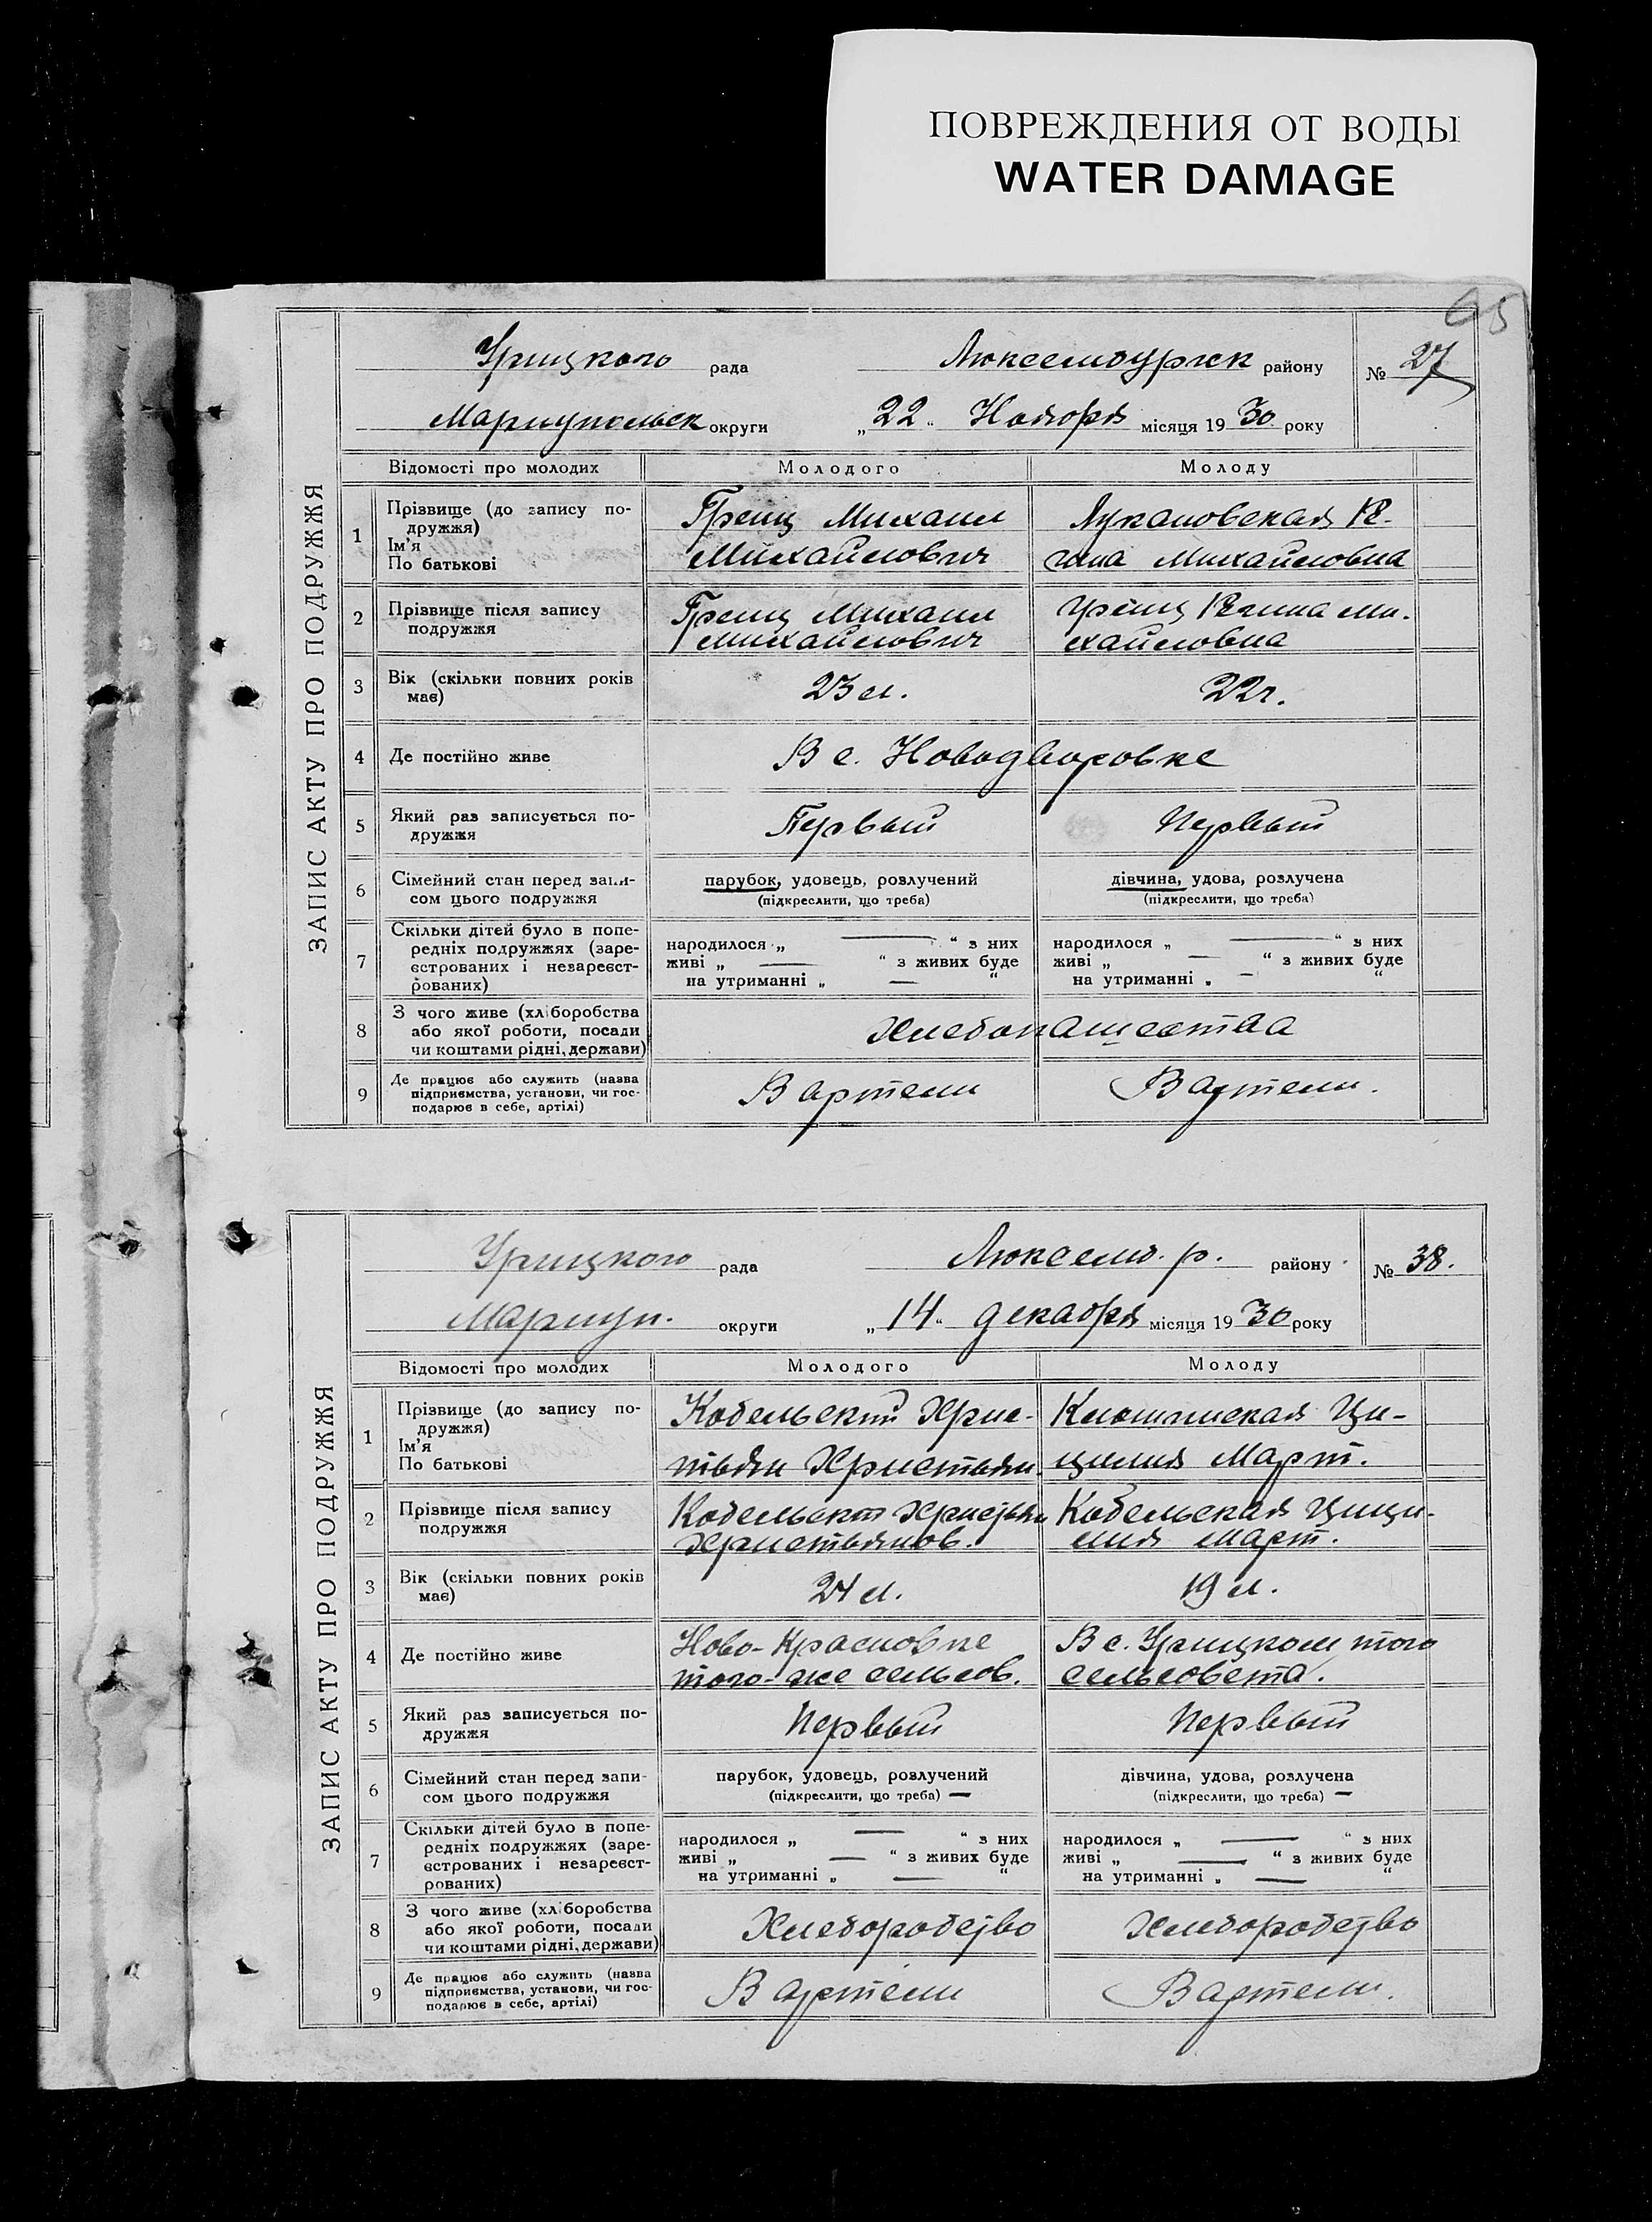 ПОВРЕЖДЕНИЯ ОТ ВОДЫ
WATER DAMAGE
65
ЗАПИС АКТУ ПРО ПОДРУЖЖЯ
Урицкого рада Люксембургск району № 27
Мариупольск округи „22“ Ноября місяця 1930 року
Відомості про молодих Молодого Молоду
1 Прізвище (до запису по-
дружжя)
Ім’я
По батькові
Грени Михаил
Михайлович
Ре-
гина Михайловна
2 Прізвище після запису
подружжя
Грени Михаил
Михайлович
Грени Регина Ми-
хайловна
3 Вік (скільки повних років
має)
23 л. 22 г.
4 Де постійно живе В с. Новодворовке
5 Який раз записується по-
дружжя
Первый Первый
6 Сімейний стан перед запи-
сом цього подружжя
парубок, удовець, розлучений
(підкреслити, що треба)
дівчина, удова, розлучена
(підкреслити, що треба)
7 Скільки дітей було в попе-
редніх подружжях (заре-
єстрованих і незареєст-
рованих)
народилося „ — “ з них
живі „ — “ з живих буде
на утриманні „ — “
народилося „ — “ з них
живі „ — “ з живих буде
на утриманні „ — “
8 З чого живе (хліборобства
або якої роботи, посади
чи коштами рідні, держави)
Хлебопашества
9 Де працює або служить (назва
підприємства, установи, чи гос-
подарює в себе, артілі)
В артели В артели.
ЗАПИС АКТУ ПРО ПОДРУЖЖЯ
Урицкого рада Люксемб. р. району № 38.
Мариуп. округи „14“ декабря місяця 1930 року
Відомості про молодих Молодого Молоду
1 Прізвище (до запису по-
дружжя)
Ім’я
По батькові
Кобельский Хрис-
тьян Христьян.
Ци-
цилия Март.
2 Прізвище після запису
подружжя
Кобельский Христьян
Христьянов.
Кобельская Цици-
лия Март.
3 Вік (скільки повних років
має)
24 л. 19 л.
4 Де постійно живе
Ново-Красновке
того-же сельсов.
В с. Урицком того
сельсовета.
5 Який раз записується по-
дружжя
Первый Первый
6 Сімейний стан перед запи-
сом цього подружжя
парубок, удовець, розлучений
(підкреслити, що треба) —
дівчина, удова, розлучена
(підкреслити, що треба) —
7 Скільки дітей було в попе-
редніх подружжях (заре-
єстрованих і незареєст-
рованих)
народилося „ — “ з них
живі „ — “ з живих буде
на утриманні „ — “
народилося „ — “ з них
живі „ — “ з живих буде
на утриманні „ — “
8 З чого живе (хліборобства
або якої роботи, посади
чи коштами рідні, держави)
Хлеборобство Хлеборобство
9 Де працює або служить (назва
підприємства, установи, чи гос-
подарює в себе, артілі)
В артели В артели.